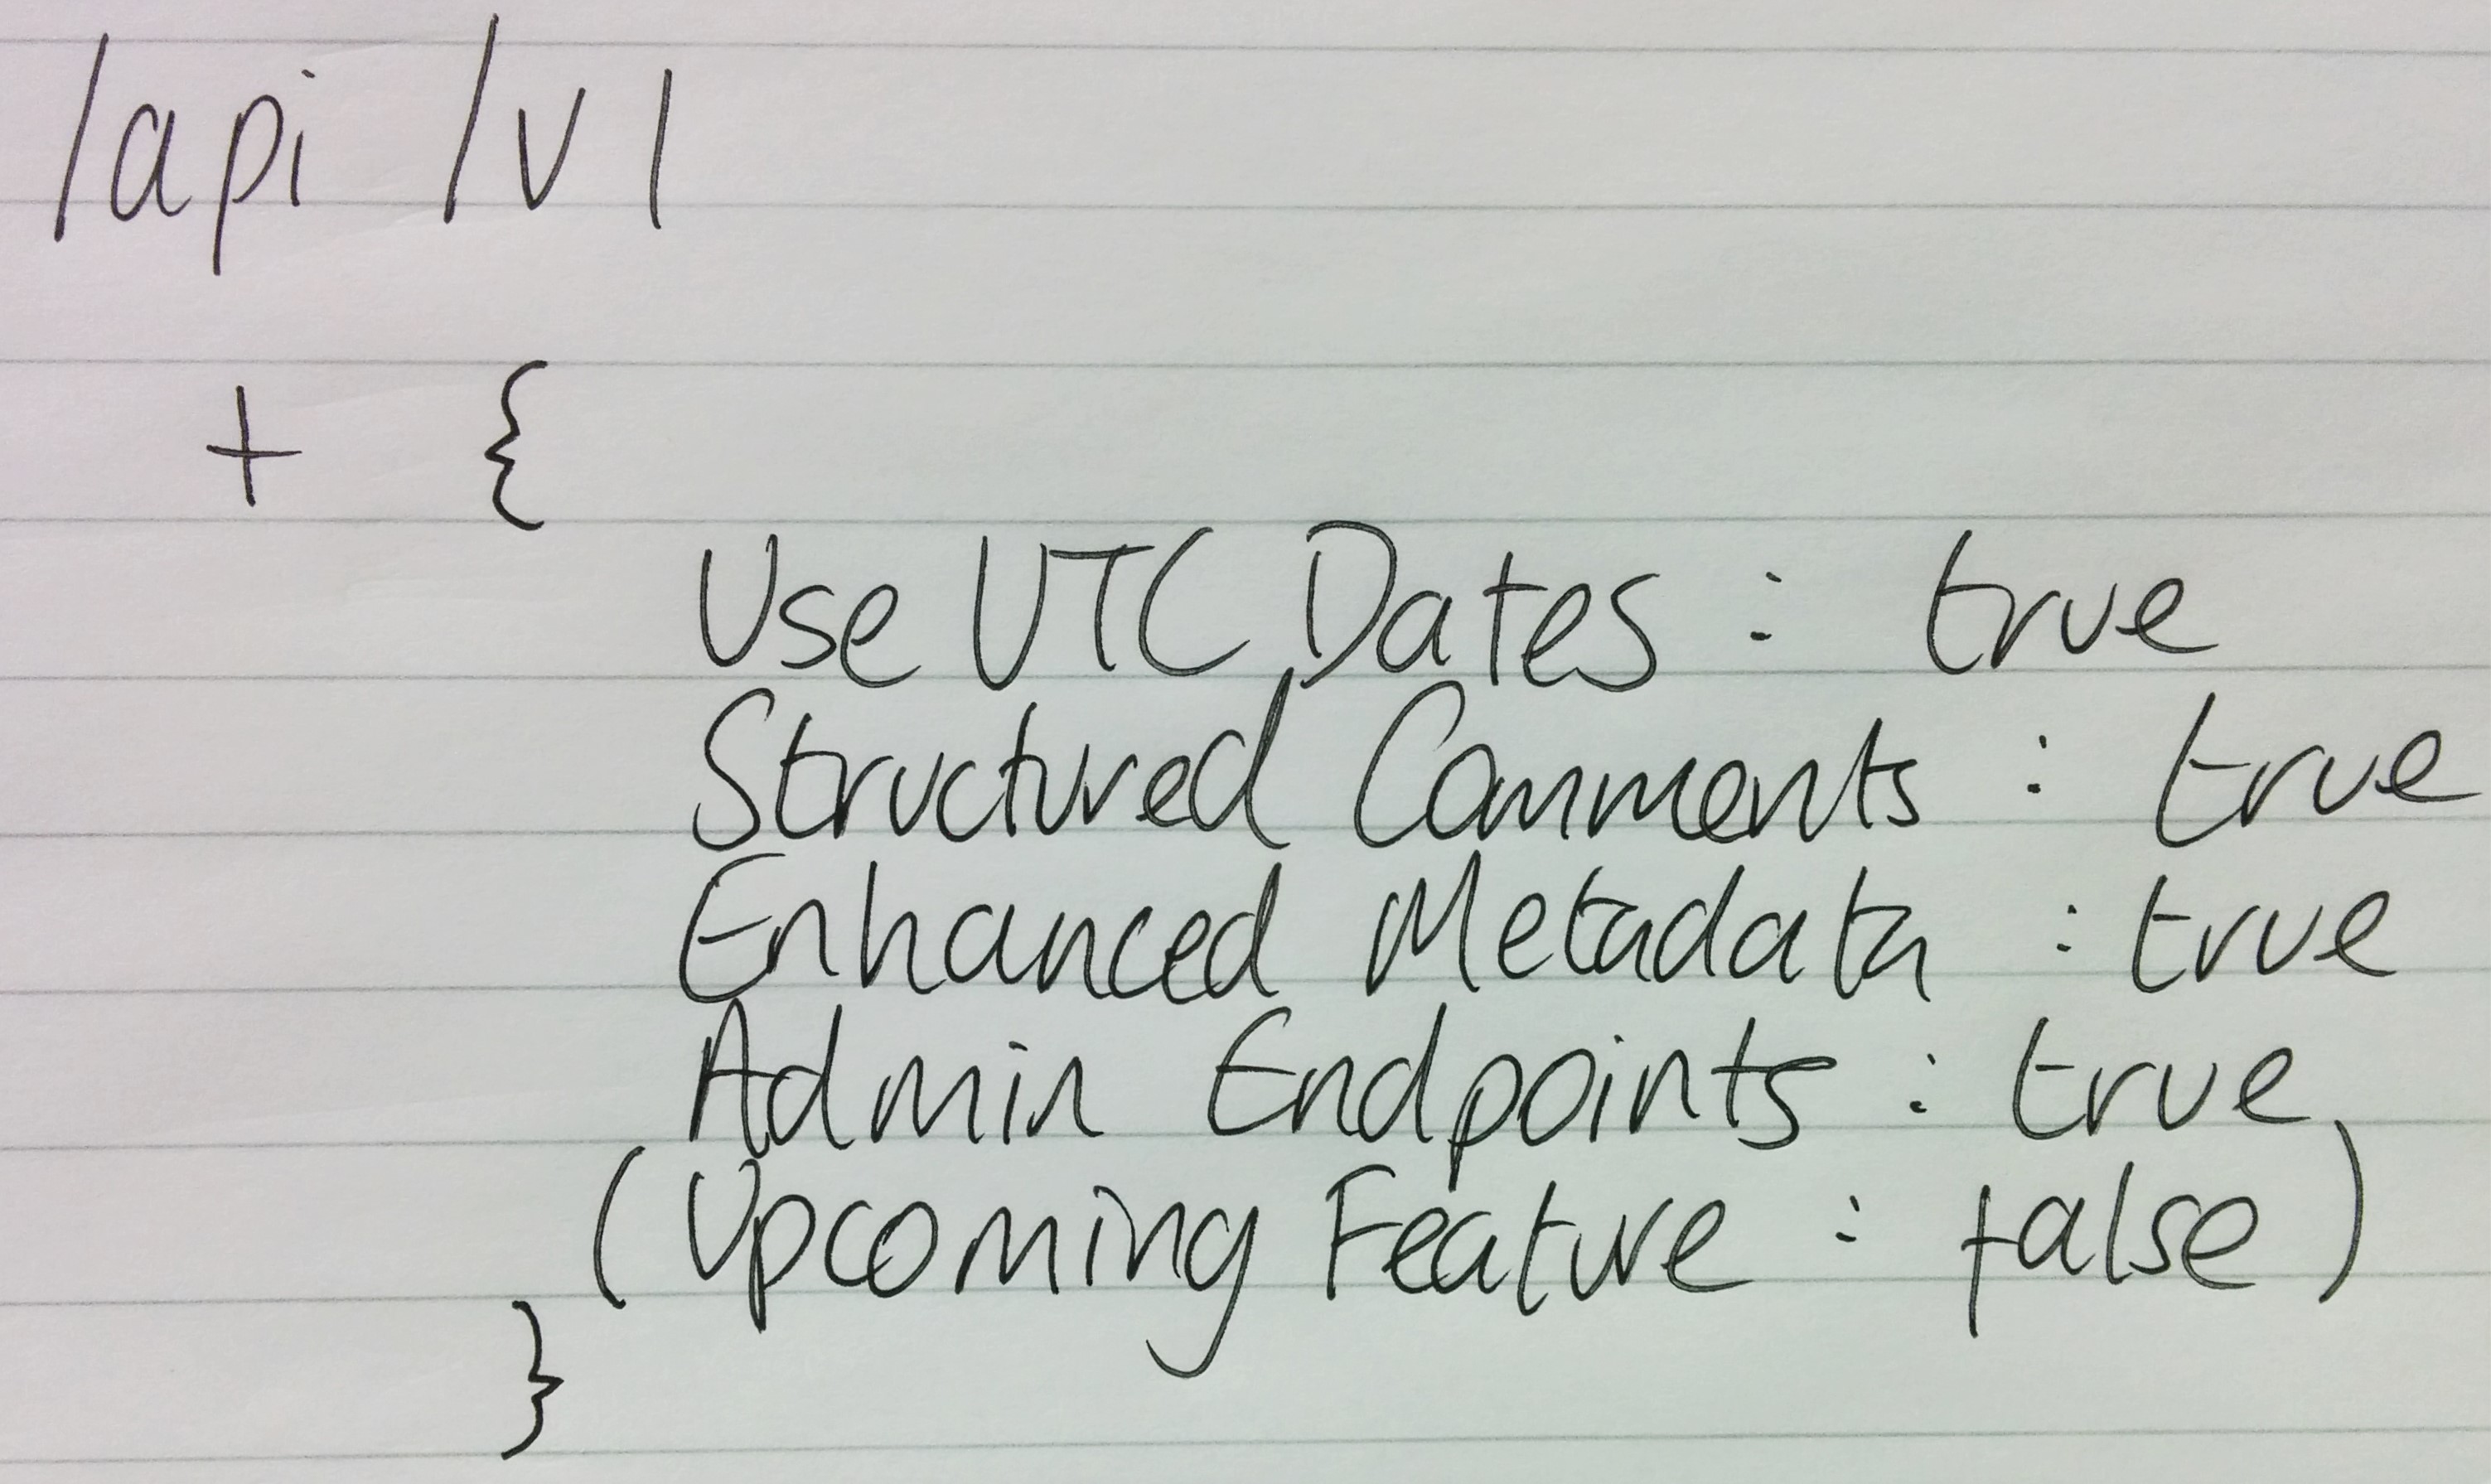 /api /v1
+ {
Use UTC Dates : true
Structured Comments : true
Enhanced Metadata : true
Admin Endpoints : true
(Upcoming Feature : false)
}